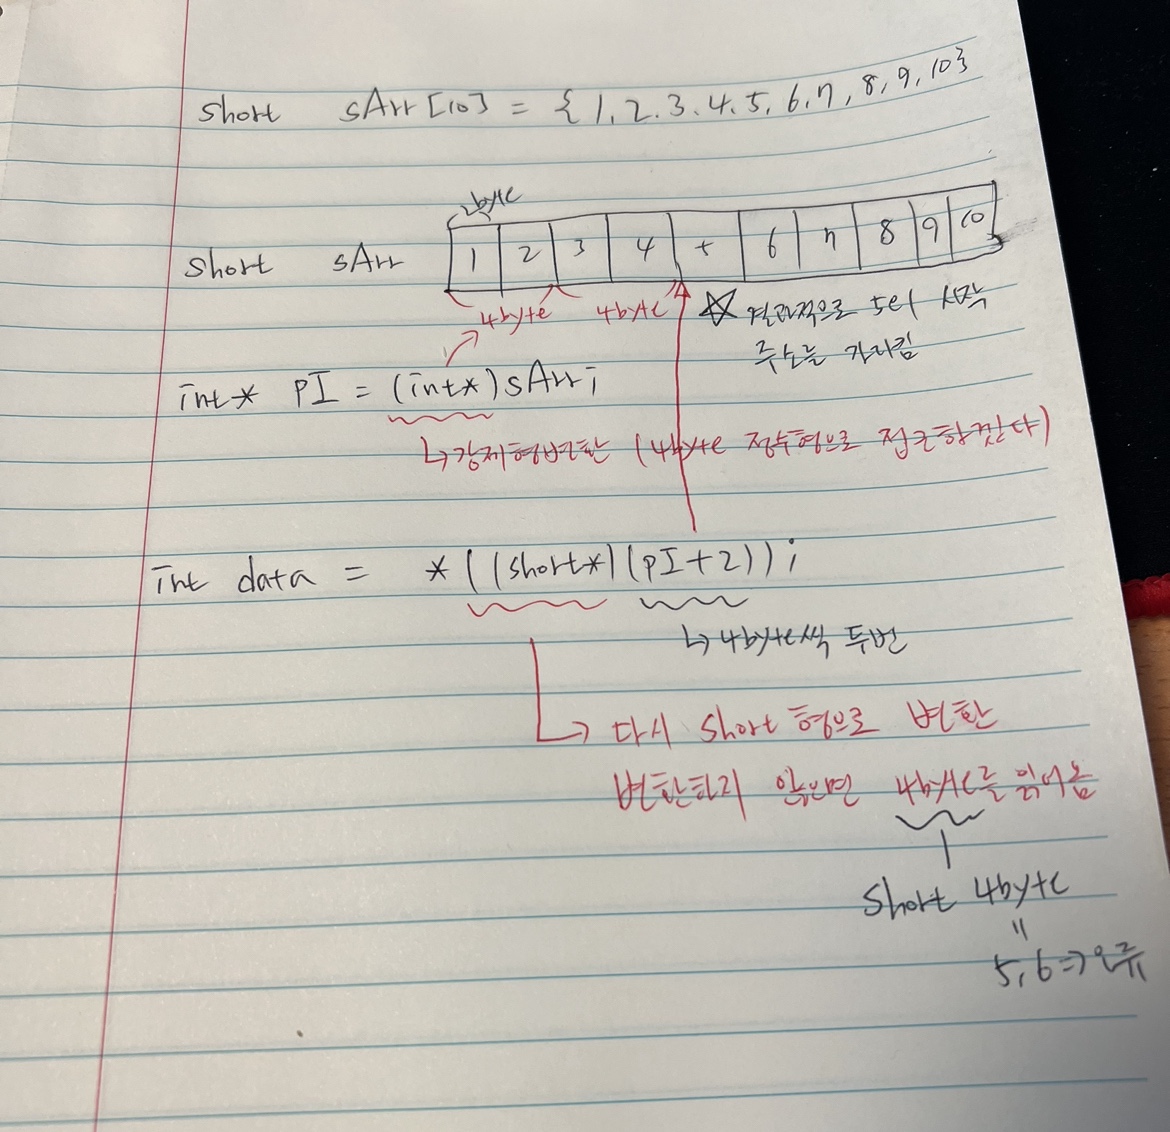 short sArr[10] = {1, 2. 3. 4. 5, 6. 7, 8, 9, 10}
2byte
short sArr 1 2 3 4 5 6 7 8 9 10
4byte 4byte ☆ 결과적으로 5의 시작
주소를 가리킴
int* pI = (int*)sArr;
↳강제형변환 (4byte 정수형으로 접근하겠다)
int data = *((short*)(pI+2));
↳4byte씩 두번
→ 다시 short 형으로 변환
변환하지 않으면 4byte를 읽어옴
short 4byte
=
5, 6 => 오류